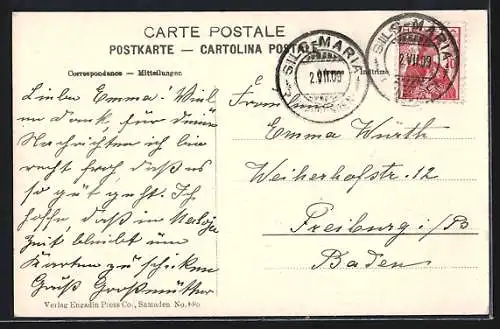 CARTE POSTALE
POSTKARTE — CARTOLINA POSTALE
Correspondence – Mitteilungen
SILS-MARIA
2.VII.09
SILS-MARIA
2.VII.09
Lieben Emma! Viel
Dank, für deine
Nachrichten ich bin
recht froh daß es
so gut geht. Ich
hoffe, daß im Maloja
Zeit, bleibt um
Karten zu schicken
Gruß Großmutter
Emma Würth
Weiherhofstr. 12
Freiburg i/B
Baden
Verlag Engadin Press Co., Samaden No.